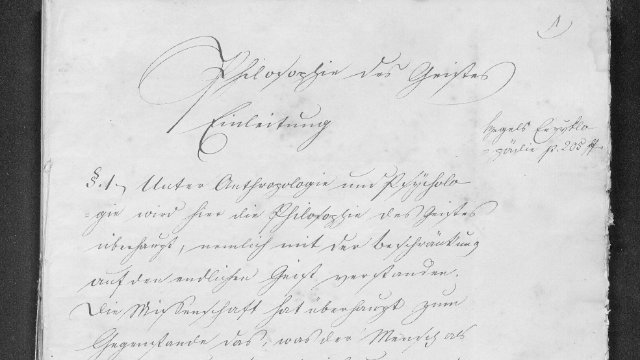 1
Philosophie des Geistes
Einleitung
Hegels Encyklo
=pädie p. 205 ff
§. 1. Unter Anthropologie und Psÿcholo
=gie wird hier die Philosophie des Geistes
überhaupt, nemlich mit der Beschränkung
auf den endlichen Geist verstanden.
Die Wissenschaft hat überhaupt zum
Gegenstande das, was der Mensch als